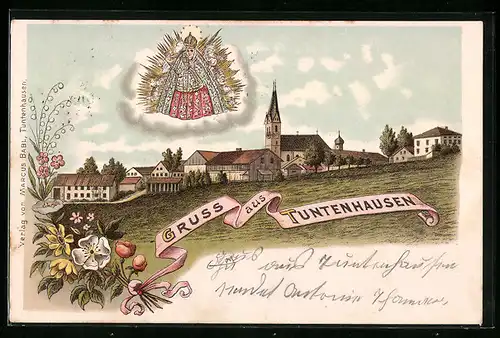 Verlag von MARCUS BABL, Tuntenhausen.
GRUSS aus TUNTENHAUSEN
Gruss
aus Tuntenhausen
sendet Antonie